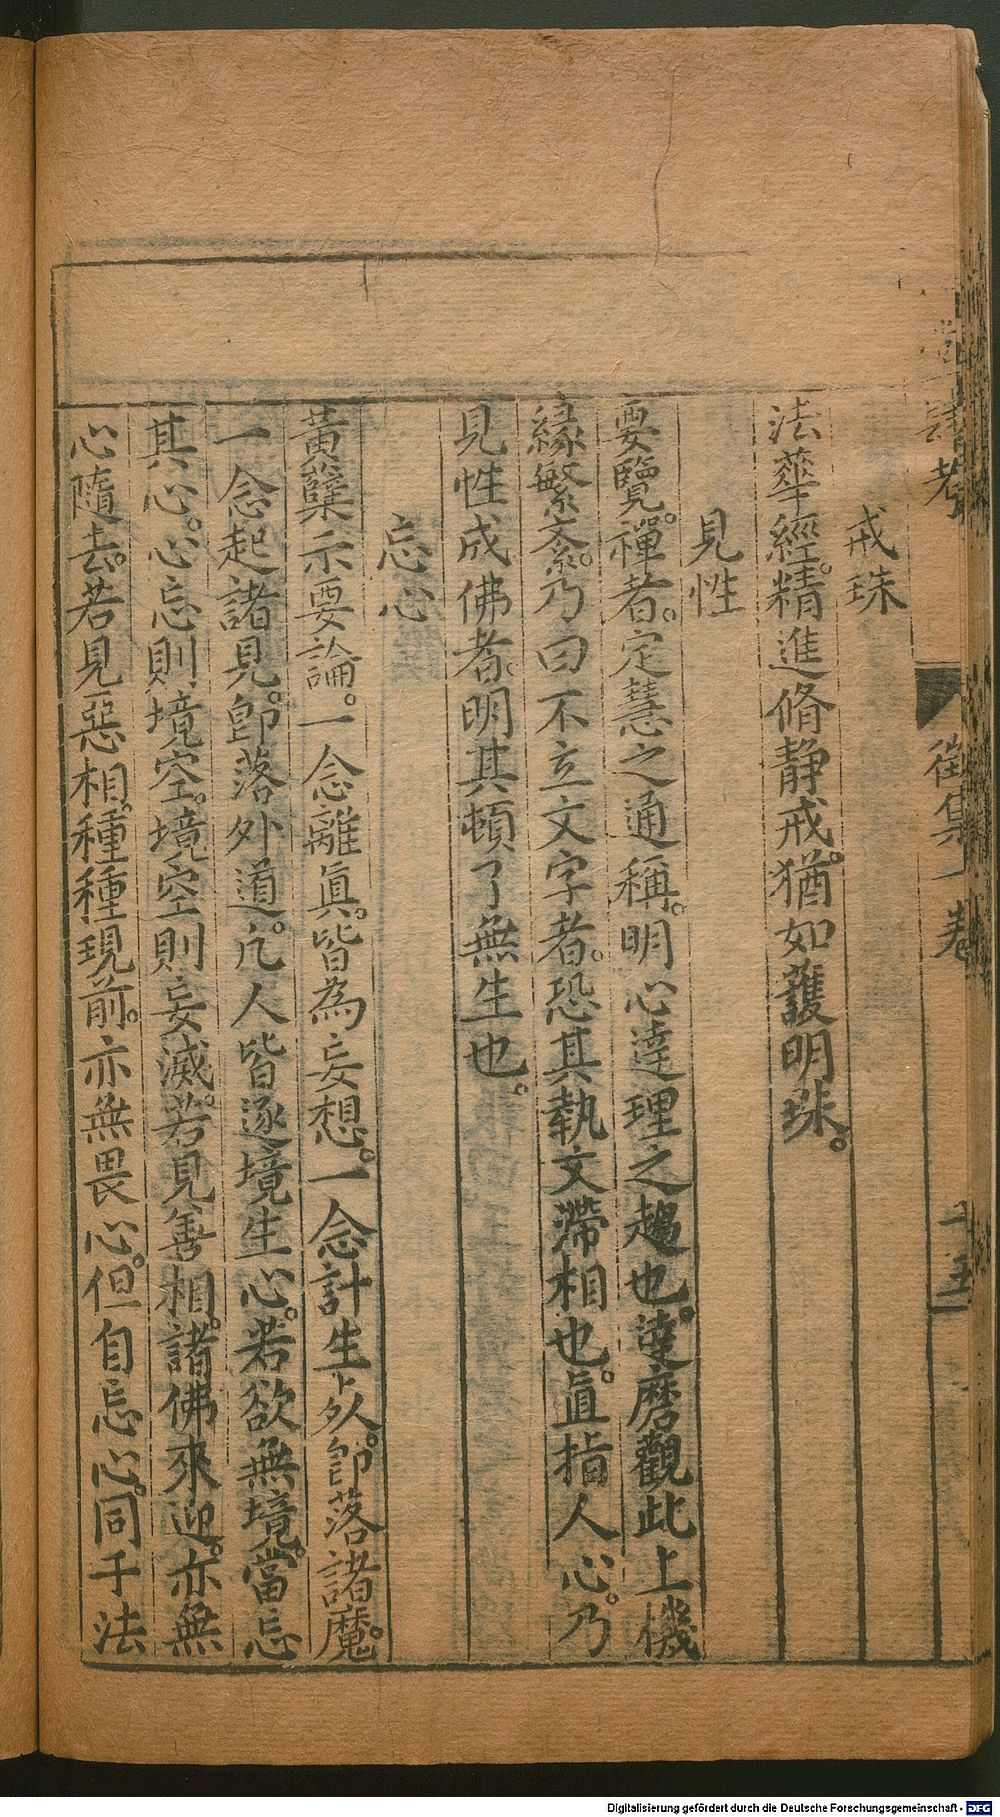 考
徵集
卷
十五
戒珠
法華經。精進脩靜戒。猶如護明珠。
見性
要覽。禪者。定慧之通稱。明心達理之趨也。達磨觀此上機
緣繁紊。乃曰不立文字者。恐其執文滯相也。直指人心。乃
見性成佛者。明其頓了無生也。
忘心
黃蘗示要論。一念離真。皆為妄想。一念計生死。即落諸魔。
一念起諸見。即落外道。凡人皆逐境生心。若欲無境。當忘
其心。心忘則境空。境空則妄滅。若見善相。諸佛來迎。亦無
心隨去。若見惡相。種種現前。亦無畏心。但自忘心。同于法
Digitalisierung gefördert durch die Deutsche Forschungsgemeinschaft - DFG